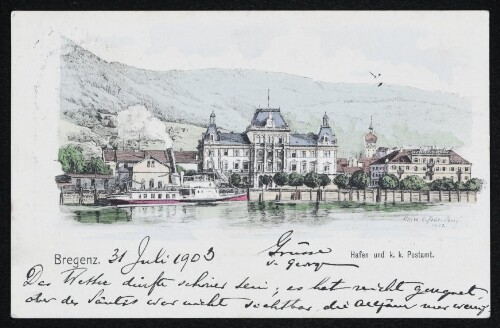 Bregenz. 31 Juli 1903
Grüsse
v. Georg
Hafen und k. k. Postamt.
Das Wetter dürfte schöner sein; es hat nicht geregnet,
oder der Säntis war nicht sichtbar, die nur wenig.